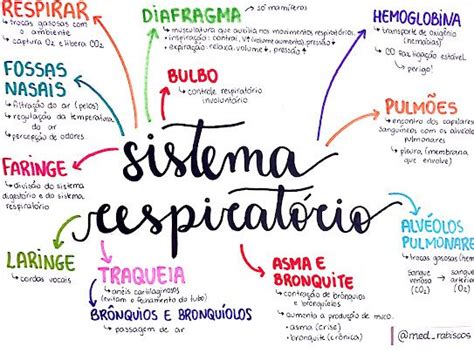 RESPIRAR
↳ trocas gasosas com
o ambiente
↳ captura O2 e libera CO2
DIAFRAGMA → só mamíferos
↳ musculatura que auxilia nos movimentos respiratórios
• inspiração: contrai, V↑ (volume aumenta), pressão↓
• expiração: relaxa, volume↓, pressão↑
HEMOGLOBINA
↳ transporte de oxigênio
(hemácias)
↳ CO faz ligação estável
↳ perigo!
FOSSAS
NASAIS
↳ filtração do ar (pelos)
↳ regulação da temperatura
do ar
↳ percepção de odores
BULBO
↳ controle respiratório
involuntário
PULMÕES
↳ encontro dos capilares
sanguíneos com os alvéolos
pulmonares
↳ pleura (membrana
que envolve)
sistema
respiratório
FARINGE
↳ divisão do sistema
digestório e do sistema
respiratório
LARINGE
↳ cordas vocais
TRAQUEIA
↳ anéis cartilaginosos
(evitam o fechamento do tubo)
BRÔNQUIOS E BRONQUÍOLOS
↳ passagem de ar
ASMA E
BRONQUITE
↳ contração de brônquios
e bronquíolos
↳ aumenta a produção de muco.
• asma (crise)
• bronquite (crônica)
ALVÉOLOS
PULMONARE
↳ trocas gasosas (hem
sangue venoso (CO2) → sangue arterial (O2)
@med_rabiscos